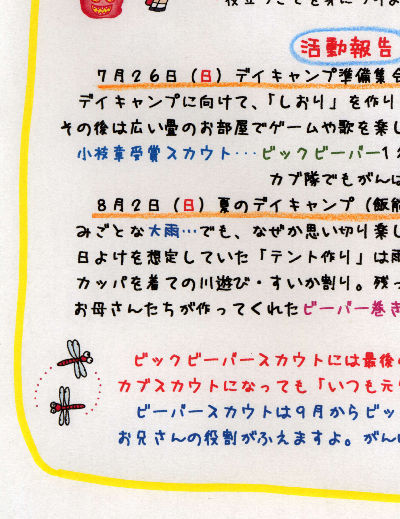 役立つことを身につけよ
活動報告
7月26日(日)デイキャンプ準備集会
デイキャンプに向けて、「しおり」を作り
その後は広い畳のお部屋でゲームや歌を楽し
小枝章受賞スカウト…ビックビーバー1
カブ隊でもがんば
8月2日(日)夏のデイキャンプ(飯能
みごとな大雨…でも、なぜか思い切り楽し
日よけを想定していた「テント作り」は雨
カッパを着ての川遊び・すいか割り。残っ
お母さんたちが作ってくれたビーバー巻き
ビックビーバースカウトには最後の
カブスカウトになっても「いつも元気
ビーバースカウトは9月からビッ
お兄さんの役割がふえますよ。がんば